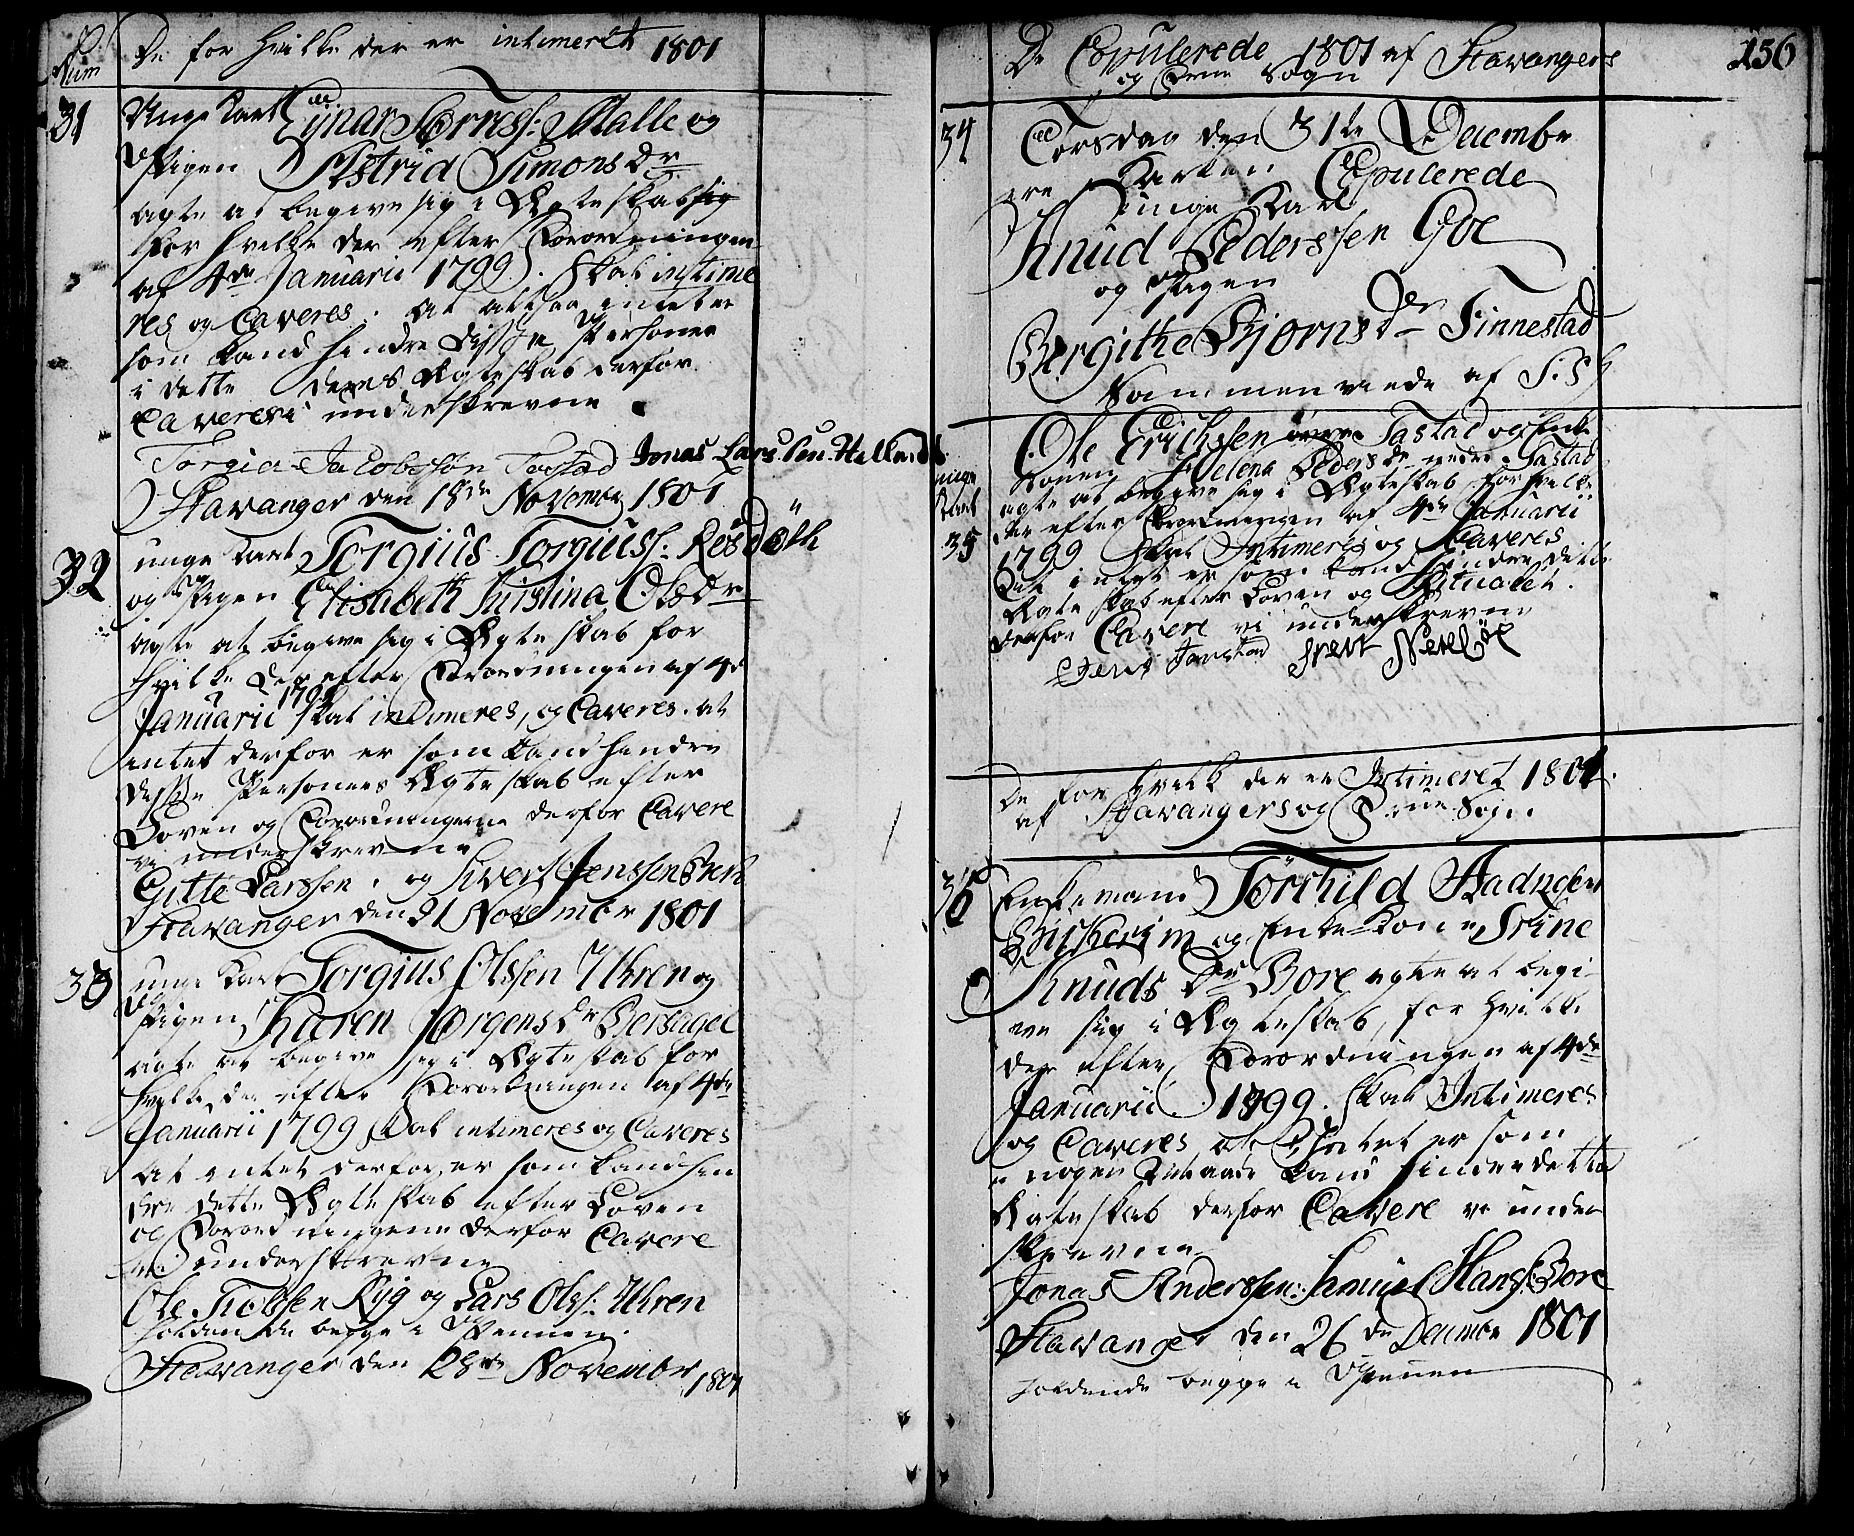 Num
De for hvilke der er intimeret 1801
31
Unge Karl Ejnar Torress: Malle og
Pigen Astrid Simons Dr
agte at begive sig i Ægteskab sig
for hvilke der efter Forordningen
af 4de Januarii 1799. skal intime
res og Caveres. at altsaa intet er
som kand hindre disse Personer
i dette deres Ægteskab derfor
Caverer vi underskrevne
Torgier Jacobssøn Tastad Jonas Larssen Helland
Stavanger den 18de Novembr 1801
32
unge Karl Torgius Torgiuss:
og Pigen Elisabeth Kirstina Olsdr
agte at begive sig i Ægteskab for
hvilke der efter Forordningen af 4de
Januarii 1799 skal intimeres, og Caveres. at
intet derfor er som kand hindre
disse Personers Ægteskab efter
Loven og Forordningerne derfor Cavere
vi underskrevne
Gitte Larssen. og Siver Jenssen
Stavanger den 21 November 1801
33
unge Karl Torgius Olssen Uhren og
Pigen Karen Jørgens Dr Bersagel
agte at begive sig i Ægteskab for
hvilke der efter Forordningen af 4de
Januarii 1799 skal intimeres og Caveres
at intet derfor er som kand hin
dre dette Ægteskab efter Loven
og Forordningerne derfor Cavere
vi underskrevne
Ole Tiølssen Ryg og Lars Olss: Uhren
holdende begge i Pennen.
Stavanger den 28de Novembr 1801
De Copulerede 1801 af Stavangers
og Sogn
156
34
Torsdag den 31te Decembr
ere Karlen Copulerede
unge Karl
Knud Pederssen Goe
og Pigen
Bergithe Bjørns Dr Finnestad
Sammenviede af
35
unge Karl
Ole Erichssen øvre Tastad og Enke
Konen Helena Peders dr nedre Tastad
agte at begive sig i Ægteskab, for hvilke
der efter Forordningen af 4de Januarii
1799 skal Intimeres og Caveres
at intet er som kand hindre dette
Ægteskab efter Loven og Ritualet.
derfor Cavere vi underskrevne
Jens Sivert
De for hvilke der er Intimeret 1801.
af Stavangers og Sogn.
36
Enkemand Törkild Aadnesen
Birkerim og Enke Kone Trine
Knuds Dr Bore agte at begi
ve sig i Ægteskab, for hvilke
der efter Forordningen af 4de
Januarii 1799. skal Intimeres
og Caveres at Intet er som
i nogen Maade kand hindre dette
Ægteskab derfor Cavere vi under
skrevne
Jonas Anderssen: Samuel Hanss: Bore
Stavanger den 26de Decembr 1801
holdende begge i Pennen